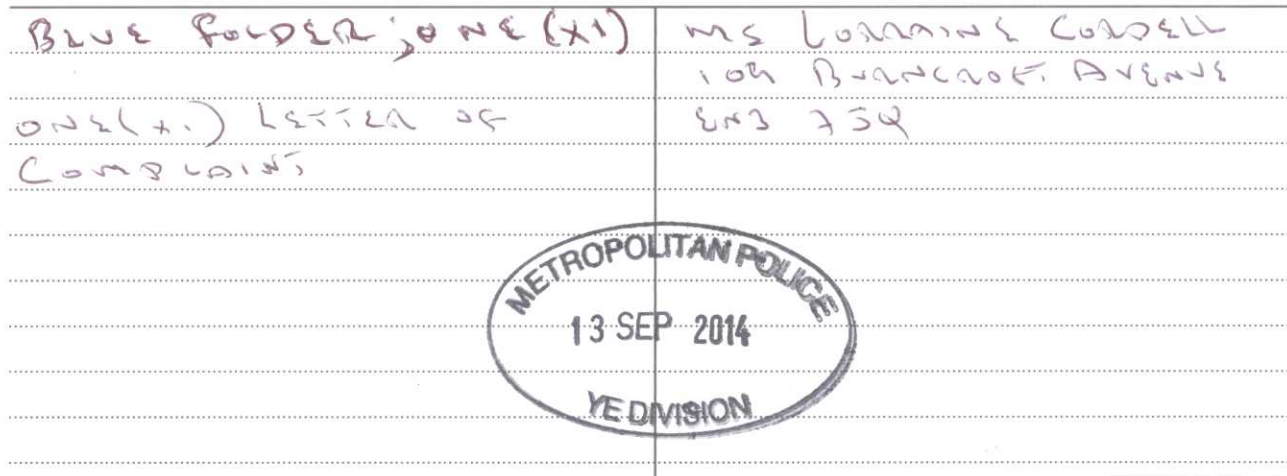 BLUE FOLDER; ONE (X1)
ONE (X1) LETTER OF
COMPLAINT
MS LORRAINE CORDELL
109 BURNCROFT AVENUE
EN3 7JQ
METROPOLITAN POLICE
13 SEP 2014
YE DIVISION